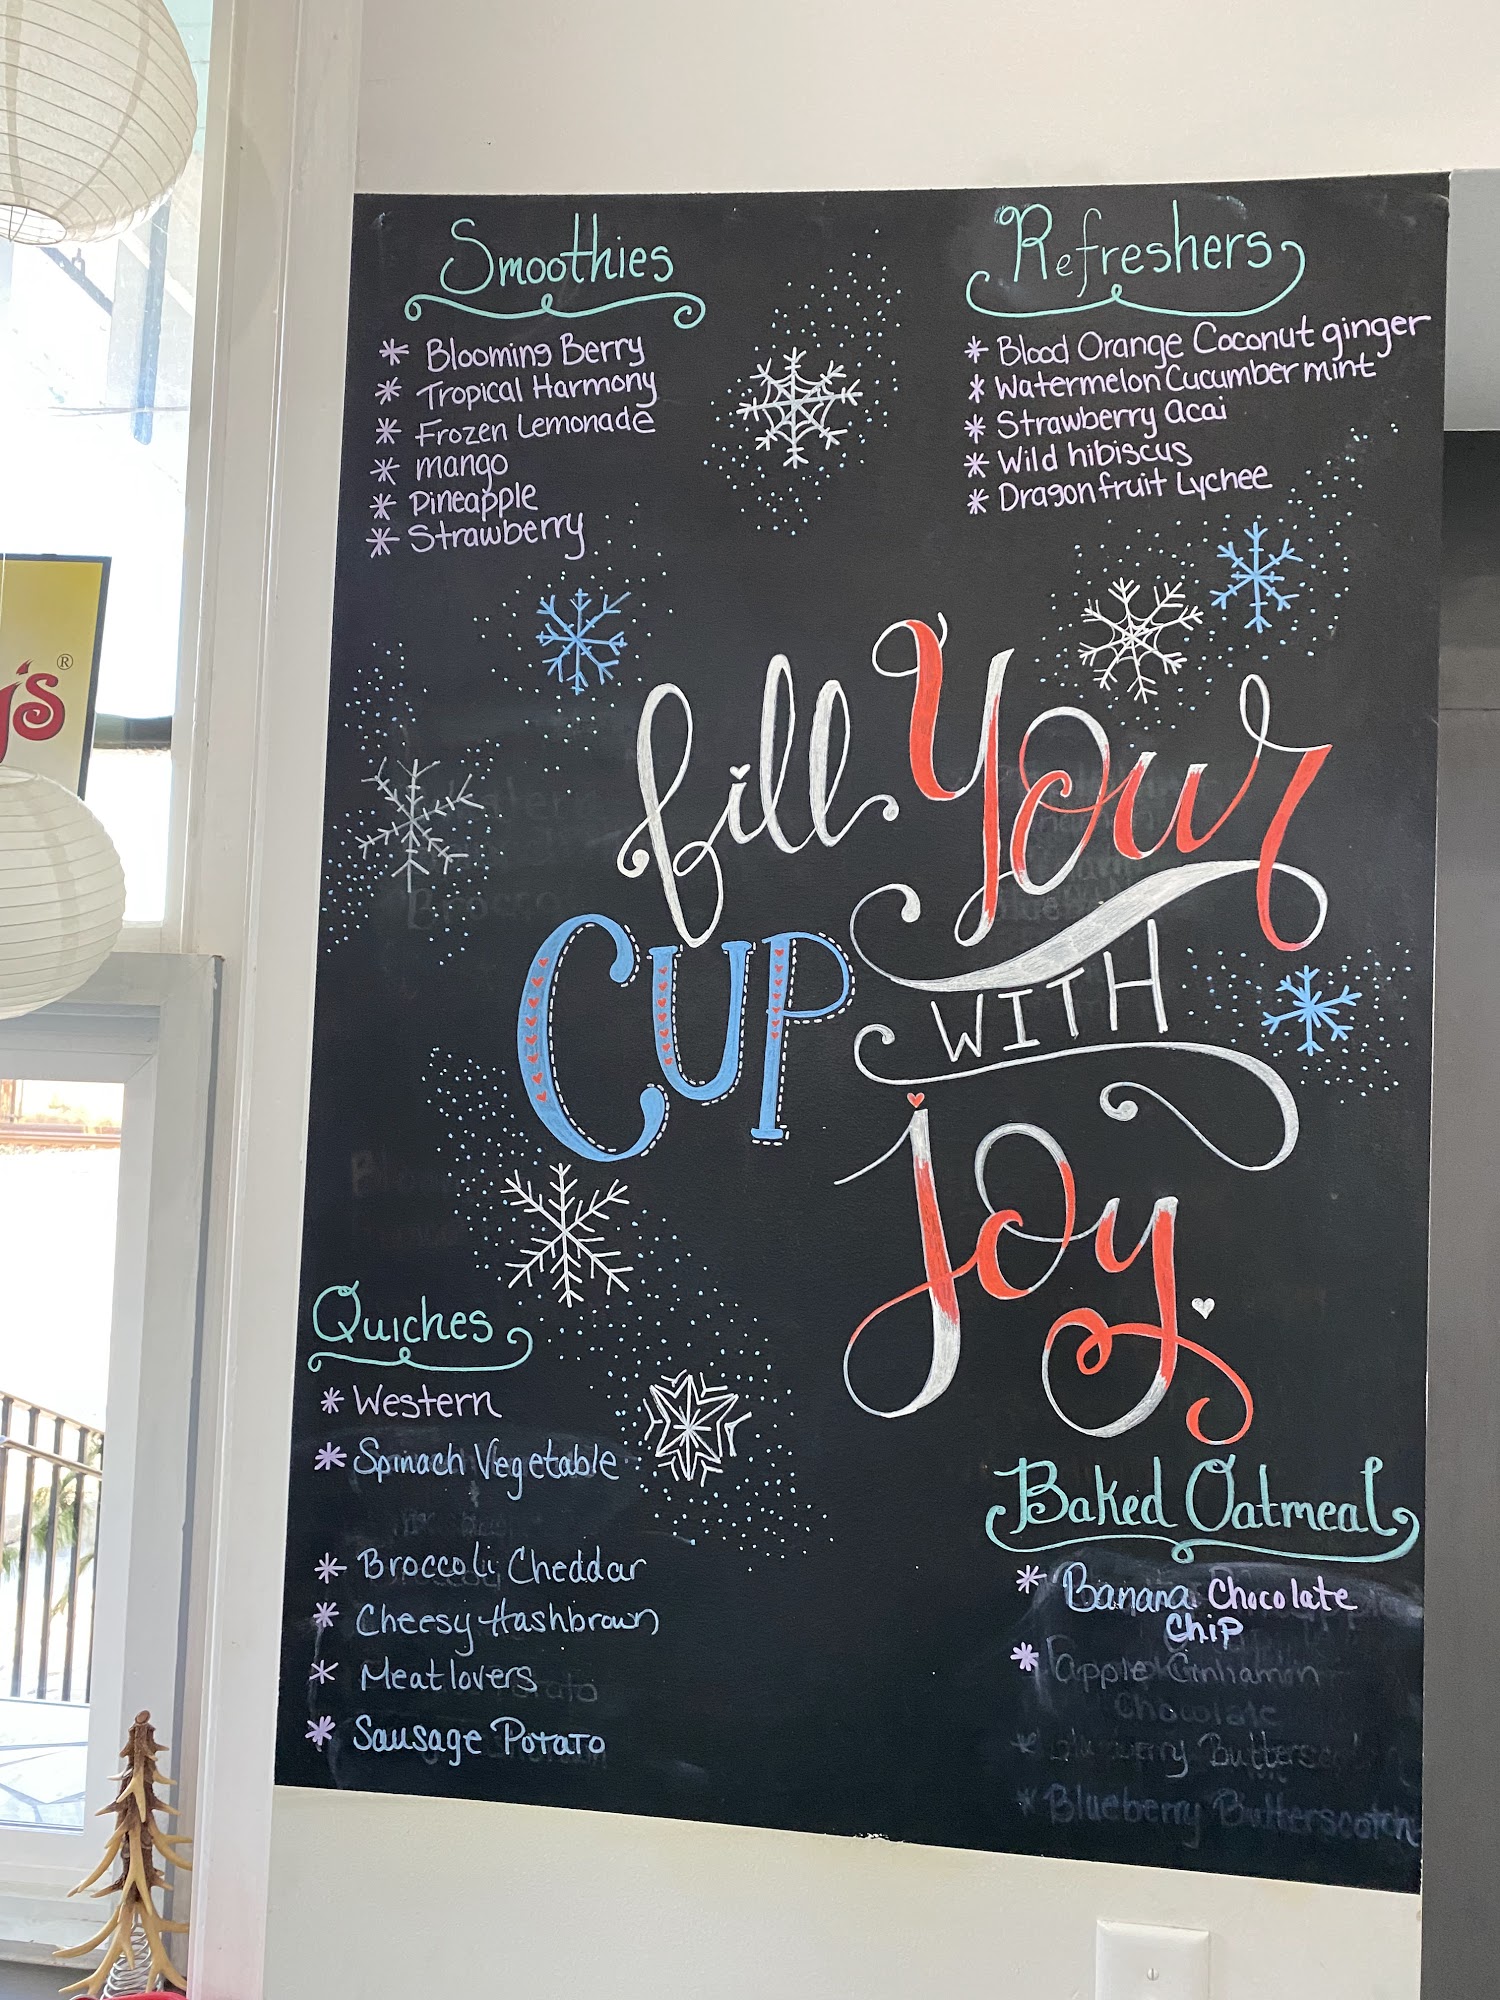 Smoothies
* Blooming Berry
* Tropical Harmony
* Frozen Lemonade
* mango
* Pineapple
* Strawberry
Refreshers
* Blood Orange Coconut ginger
* Watermelon Cucumber mint
* Strawberry Acai
* Wild hibiscus
* Dragonfruit Lychee
's®
fill Your
CUP
WITH
Joy
Quiches
* Western
* Spinach Vegetable
* Broccoli Cheddar
* Cheesy Hashbrown
* Meatlovers
* Sausage Potato
Baked Oatmeal
* Banana Chocolate
Chip
* Apple Cinnamon
Chocolate
* Blueberry Butterscotch